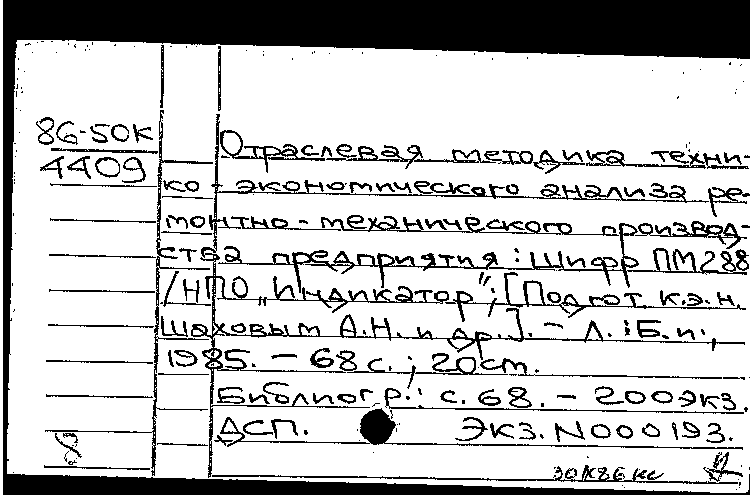 86-50К
4409
Отраслевая методика техни-
ко-экономического анализа ре-
монтно-механического производ-
ства предприятия: Шифр ПМ288
/НПО „Индикатор"; [Подгот. к.э.н.
Шаховым А.Н. и др.]. - Л.: Б.и.,
1985. - 68 с.; 20 см.
Библиогр.: с. 68. - 200 экз.
ДСП. Экз. N000193.
8